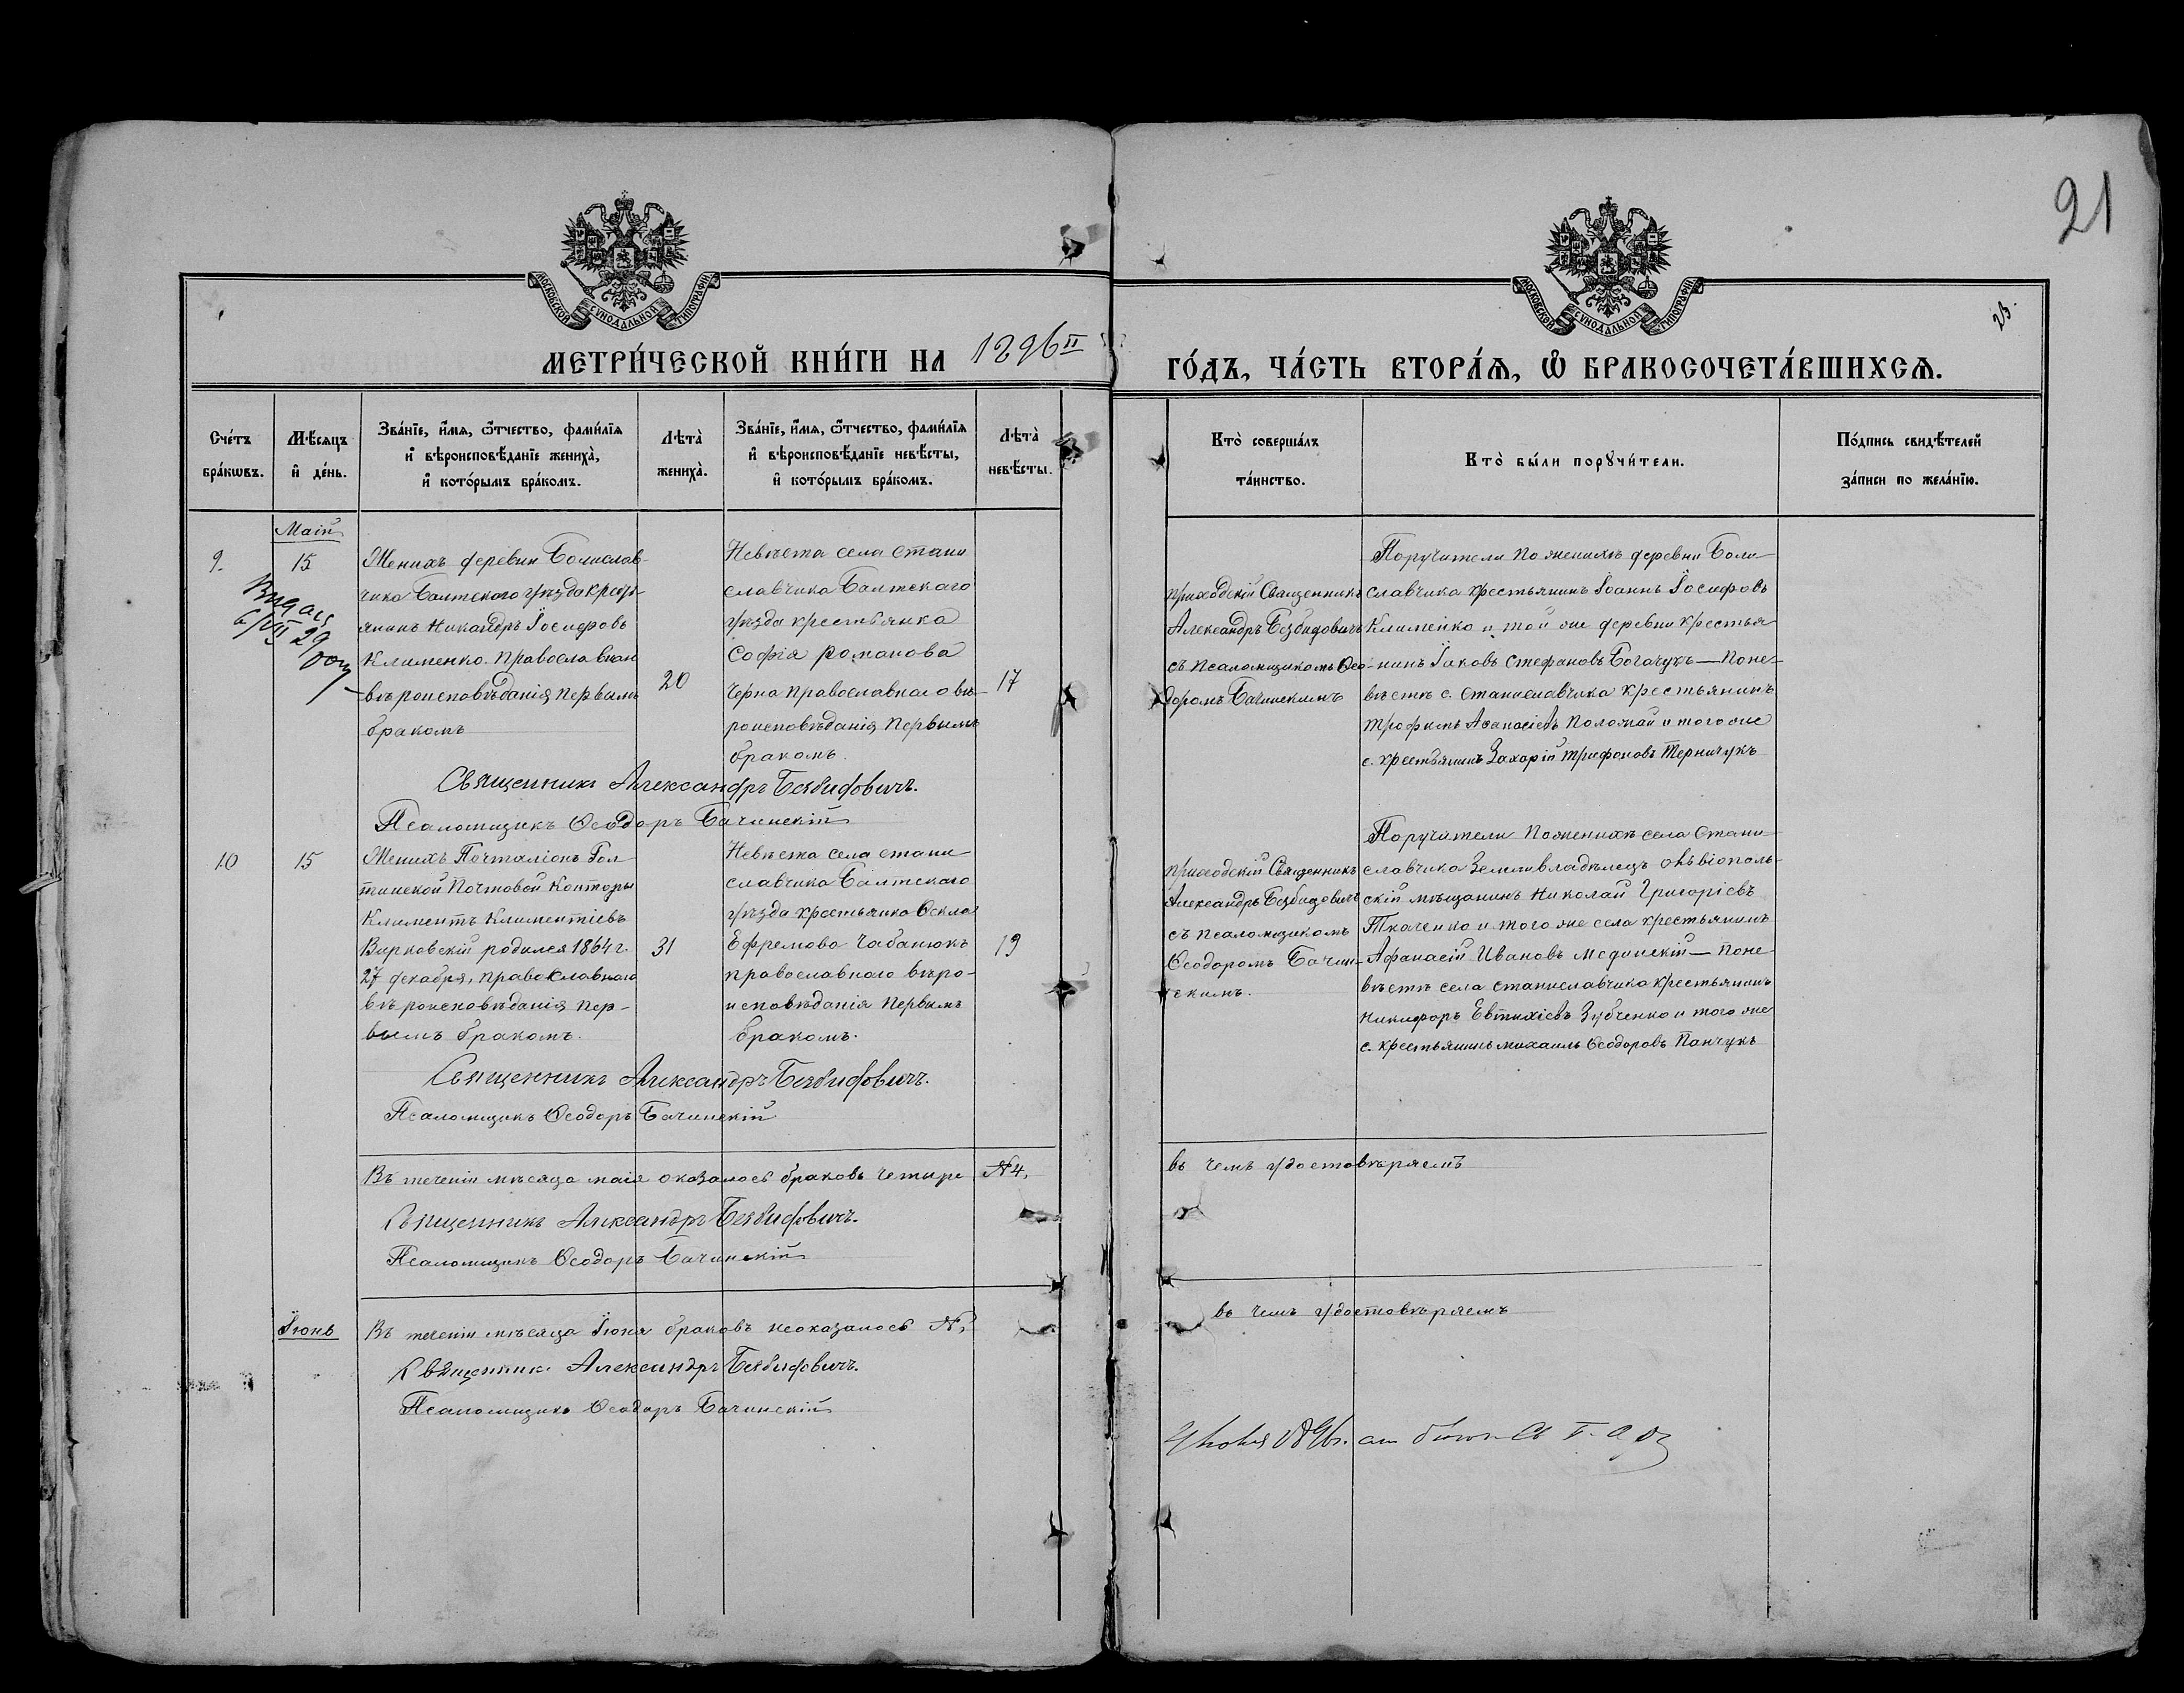 21
23.
МОСКОВСКОЙ СѴНОДАЛЬНОЙ ТИПОГРАФІИ
МОСКОВСКОЙ СѴНОДАЛЬНОЙ ТИПОГРАФІИ
МЕТРИ́ЧЕСКОЙ КНИ́ГИ НА 1896 ГО́ДЪ, ЧА́СТЬ ВТОРА́Ѧ, Ѡ҆ БРАКОСОЧЕТА́ВШИХСѦ.
Сче́тъ
бра́кѡвъ.
Мѣ́сяцъ
и҆ де́нь.
Зва́нїе, и҆́мѧ, ѻ҆́тчество, фами́лїѧ
и҆ вѣроисповѣ́данїе жениха̀,
и҆ кото́рымъ бра́комъ.
Лѣта̀
жениха̀.
Зва́нїе, и҆́мѧ, ѻ҆́тчество, фами́лїѧ
и҆ вѣроисповѣ́данїе невѣ́сты,
и҆ кото́рымъ бра́комъ.
Лѣта̀
невѣ́сты.
Кто̀ соверша́лъ
та́инство.
Кто̀ бы́ли порꙋчи́тели.
По́дпись свидѣ́телей
за́писи по жела́нїю.
Маій
9.
15
Женихъ деревни Болислав-
чика Балтскаго уѣзда кресть-
янинъ Никандръ Іосифовъ
Клименко. Православнаго
вѣроисповѣданія первымъ
бракомъ
20
Невѣста села Стани
славчика Балтскаго
уѣзда крестьянка
Софія Романова
Черна православнаго вѣ-
роисповѣданія первымъ
бракомъ.
17
Приходскій Священникъ
Александръ Безвидовичъ
съ псаломщикомъ Ѳео-
доромъ Бачинскимъ
Поручители по женихѣ деревни Боли-
славчика крестьянинъ Іоаннъ Іосифовъ
Клименко и той же деревни крестья
нинъ Іаковъ Стефановъ Богачукъ — По не-
вѣстѣ с. Станиславчика крестьянинъ
Трофимъ Аѳанасіевъ Поломай и того же
с. крестьянинъ Захарій Трифоновъ Терничукъ
Священникъ Александръ Безвидовичъ.
Псаломщикъ Ѳеодоръ Бачинскій
10
15
Женихъ Почталіонъ Гол
тинской Почтовой Конторы
Климентъ Климентіевъ
Вирковскій родился 1864 г.
27 декабря, православнаго
вѣроисповѣданія пер-
вымъ бракомъ.
31
Невѣста села Стани-
славчика Балтскаго
уѣзда крестьянка Ѳекла
Ефремова Чабанюкъ
православнаго вѣро-
исповѣданія первымъ
бракомъ.
19
Приходскій Священникъ
Александръ Безвидовичъ
съ псаломщикомъ
Ѳеодоромъ Бачин-
скимъ.
Поручители по женихѣ села Стани-
славчика Землевладѣлецъ Ольвіополь-
скій мѣщанинъ Николай Григоріевъ
Ткаченко и того же села крестьянинъ
Афанасій Ивановъ Мединскій — По не-
вѣстѣ села Станиславчика крестьянинъ
Никифоръ Евтихіевъ Зубченко и того же
с. крестьянинъ Михаилъ Ѳеодоровъ Панчукъ
Священникъ Александръ Безвидовичъ.
Псаломщикъ Ѳеодоръ Бачинскій
Въ теченіи мѣсяца маія оказалось браковъ четыре №4.
въ чемъ удостовѣряемъ
Священникъ Александръ Безвидовичъ.
Псаломщикъ Ѳеодоръ Бачинскій
Іюнь
Въ теченіи мѣсяца Іюня браковъ неоказалось №,
въ чемъ удостовѣряемъ
Священникъ Александръ Безвидовичъ.
Псаломщикъ Ѳеодоръ Бачинскій